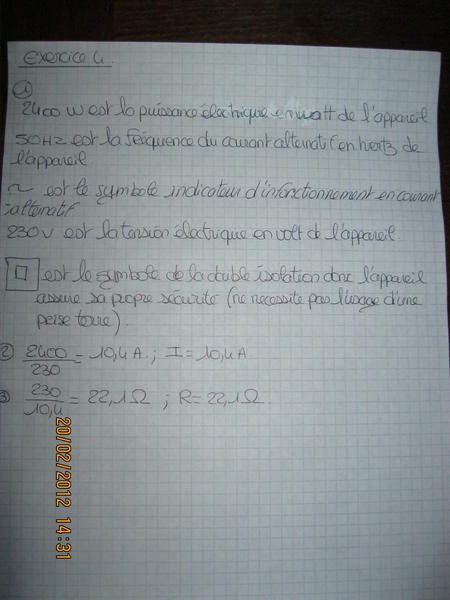 Exercice 4.
①
2400 W est la puissance électrique en watt de l'appareil
50HZ est la féiquence du courant alternatif en hertz de
l'appareil
~ est le symbole indicateur d'infonctionnement en courant
alternatif
230 V est la tension électrique en volt de l'appareil.
est le symbole de la double isolation donc l'appareil
assure sa propre sécurité (ne necessite pas l'usage d'une
peise terre).
② 2400/230 = 10,4 A ; I = 10,4 A
③ 230/10,4 = 22,1 Ω ; R = 22,1 Ω.
20/02/2012 14:31